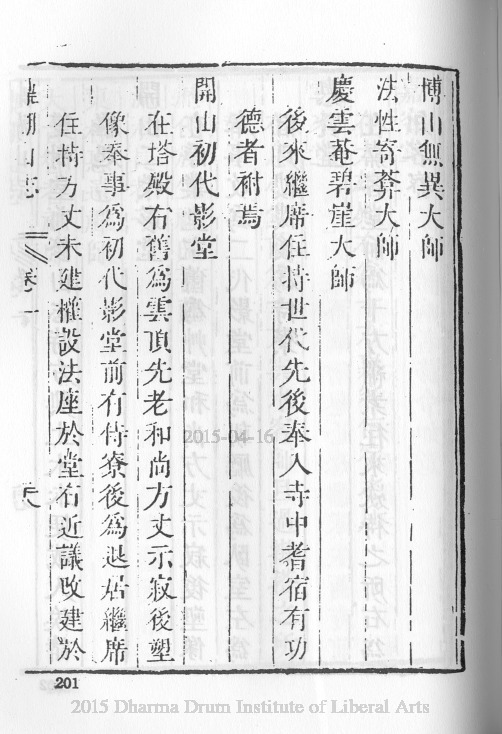 博山無異大師
法性寄菴大師
慶雲菴碧崖大師
後來繼席住持世代先後奉入寺中耆宿有功
德者祔焉
開山初代影堂
在塔殿右舊為雲頂先老和尚方丈示寂後塑
像奉事為初代影堂前有侍寮後為退居繼席
住持方丈未建權設法座於堂右近議改建於
山志 卷一
201
2015-04-16
2015 Dharma Drum Institute of Liberal Arts